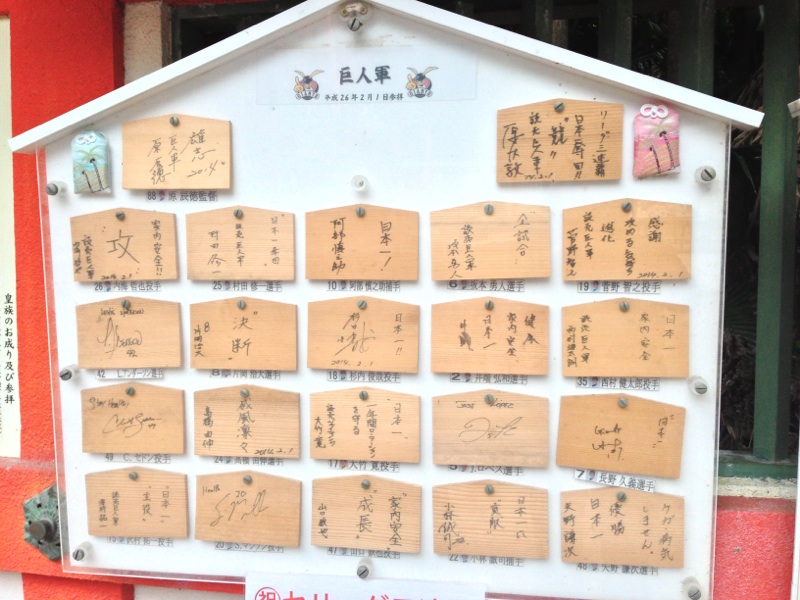 巨人軍
平成26年2月1日参拝
雄志
2014
巨人軍
原 辰徳
88 原 辰徳監督
リーグ三連覇
日本奪回!!
"競"
読売巨人軍
家内安全!!
攻
読売巨人軍
2014.2.1
26 内海 哲也投手
"日本一奪回"
読売巨人軍
村田修一
25 村田 修一選手
日本一!
阿部慎之助
10 阿部 慎之助捕手
全試合
読売巨人軍
坂本勇人
6 坂本 勇人選手
感謝
攻める気持ち
進化
読売巨人軍
菅野智之
2014.2.1
19 菅野 智之投手
42 L.アンダーソン選手
"決断"
8 片岡 治大選手
日本一!!
杉内
2014.2.1
18 杉内 俊哉投手
健康
家内安全
日本一
井端
2 井端 弘和選手
日本一
家内安全
読売巨人軍
西村健太朗
35 西村 健太朗投手
49 C.セドン投手
威風凛々
高橋由伸
2014.2.1
24 高橋 由伸選手
"日本一"
一年間ローテーション
を守る
大竹 寛
17 大竹 寛投手
Jose Lopez
5 J.ロペス選手
"日本一"
7 長野 久義選手
"日本一"
"主役"
読売巨人軍
澤村拓一
15 澤村 拓一投手
20
20 S.マシソン投手
"家内安全"
"成長"
山口鉄也
47 山口 鉄也投手
日本一に
"貢献"
小林誠司
22 小林 誠司捕手
ケガ、病気
しません。
優勝
日本一
矢野謙次
48 矢野 謙次選手
皇族のお成り及び参拝
祝